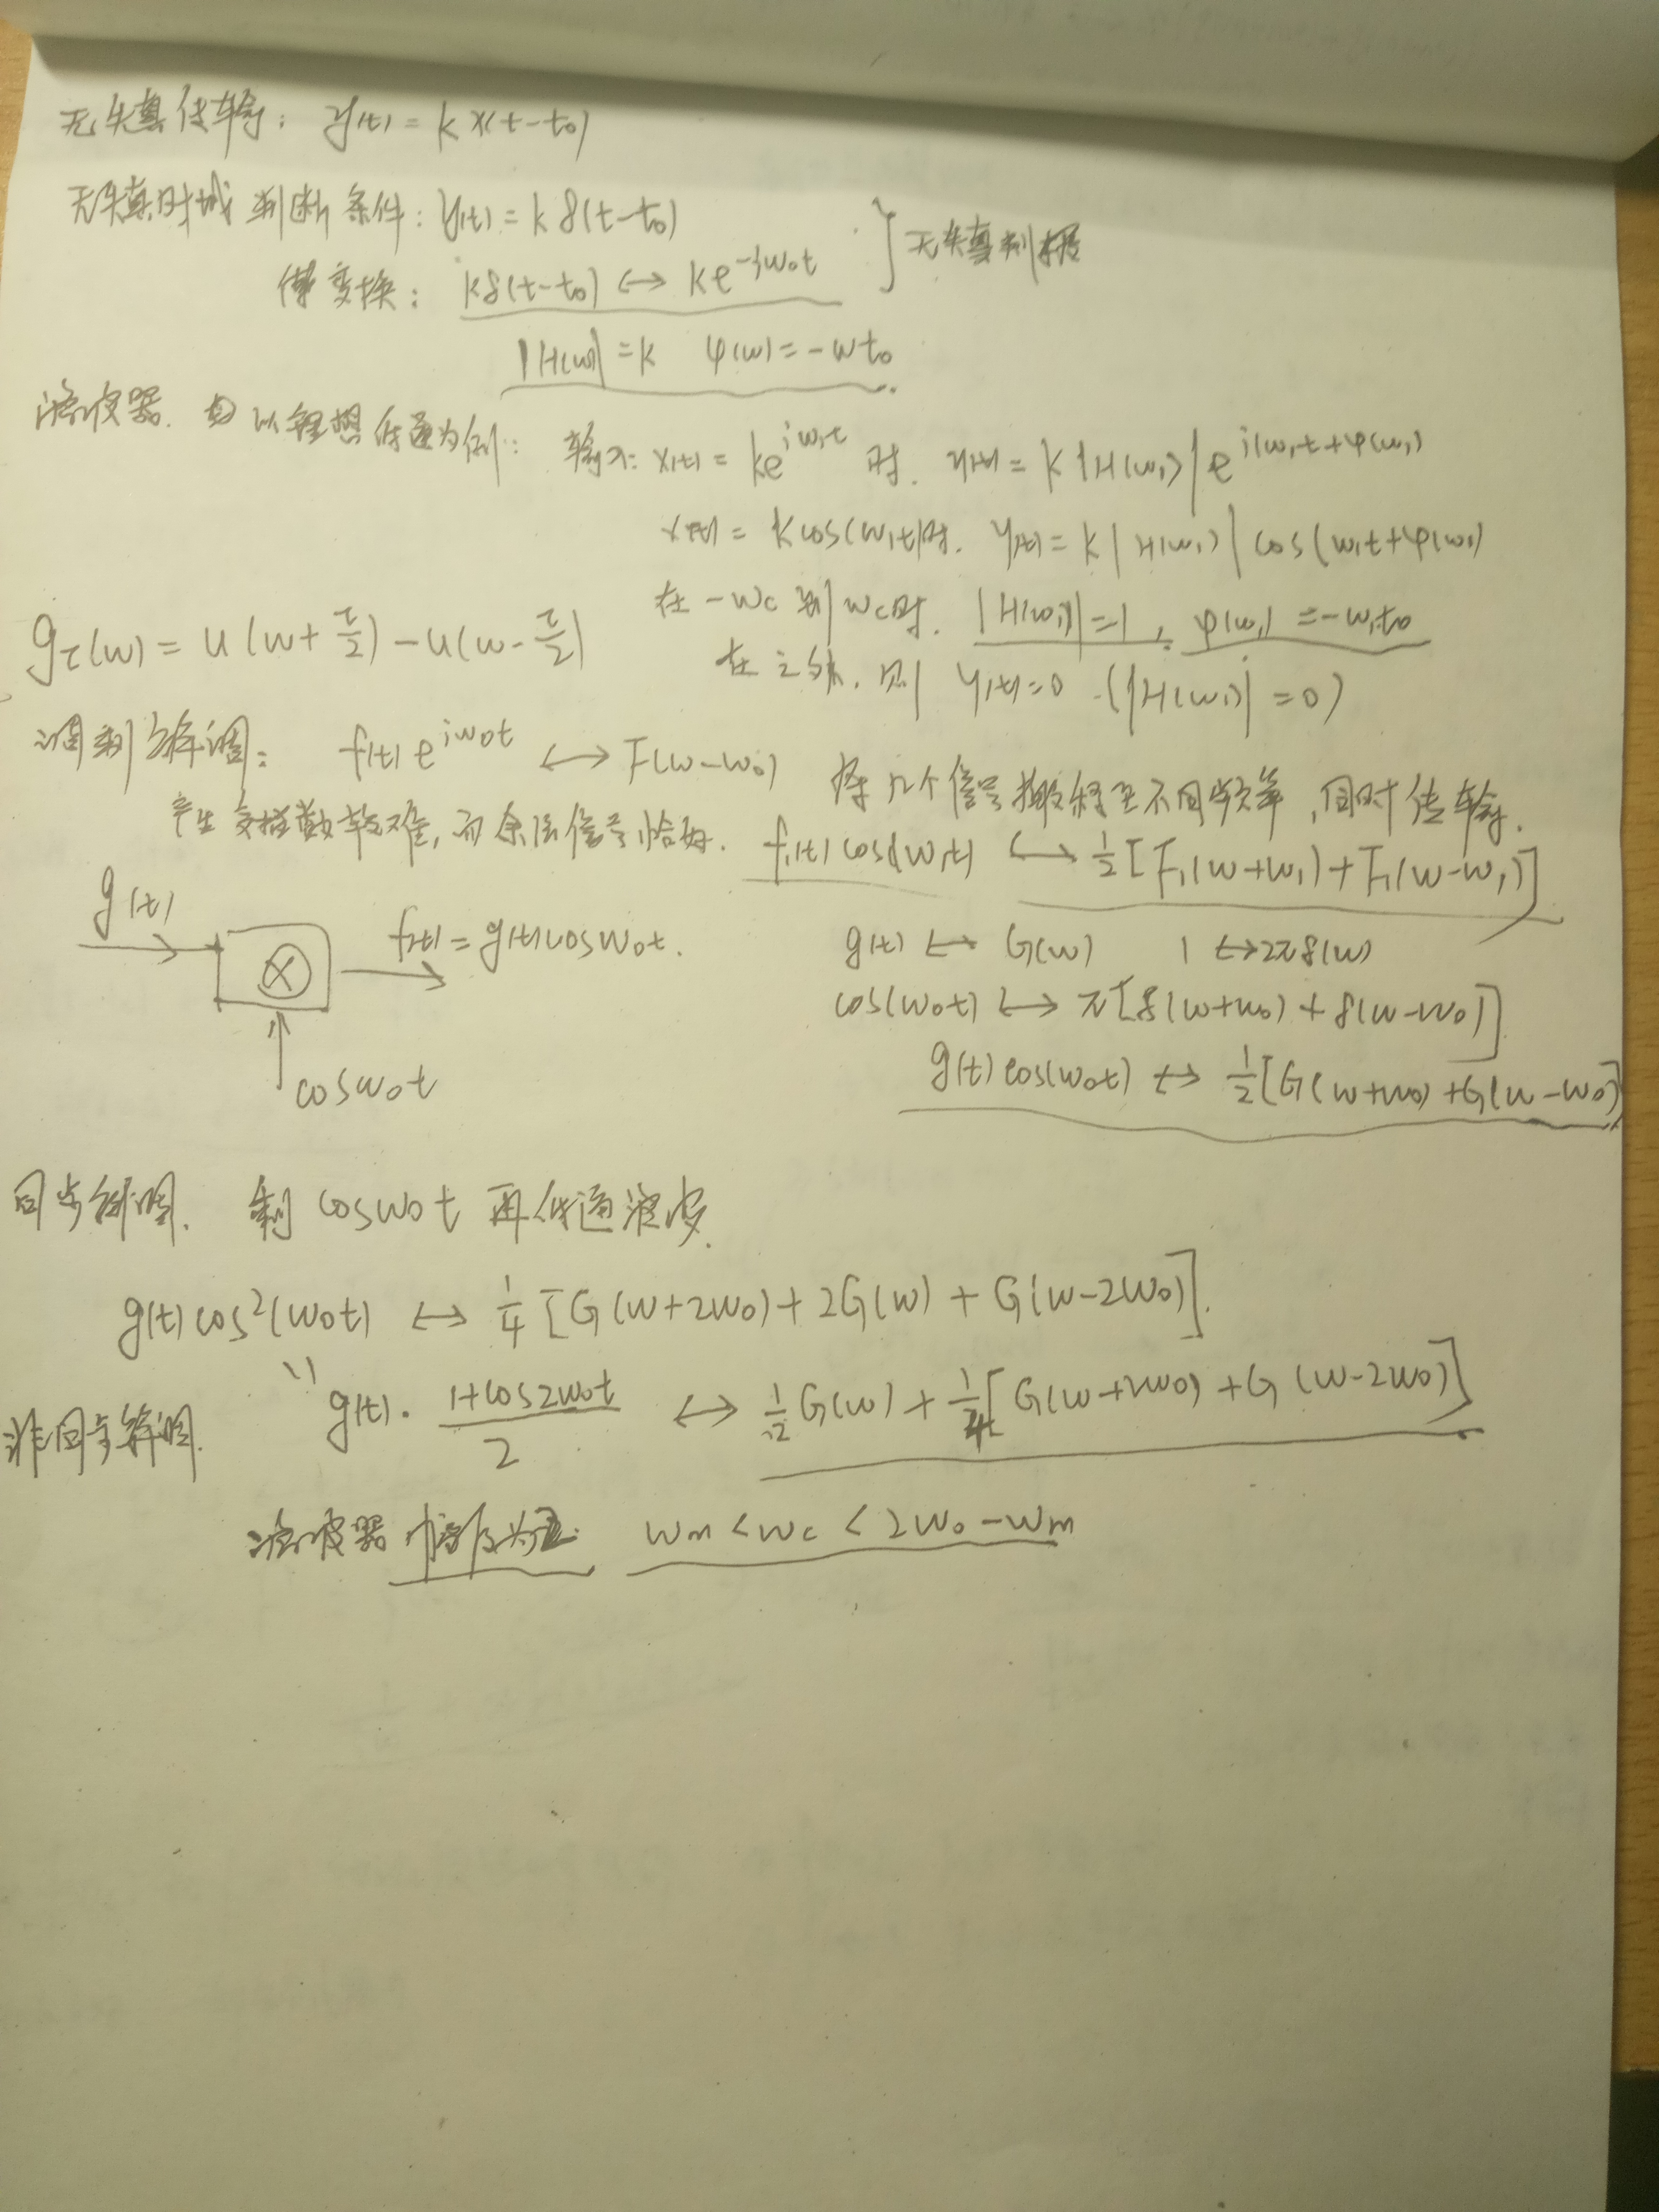 无失真传输： y(t) = k x(t-t₀)
无失真时域判断条件： y(t) = k δ(t-t₀)
傅变换： kδ(t-t₀) ↔ ke^{-jw₀t} } 无失真判据
|H(w)| = k φ(w) = -wt₀
滤波器. 以理想低通为例： 输入: x(t) = ke^{jw₁t} 时. y(t) = k|H(w₁)|e^{j(w₁t+φ(w₁)}
x(t) = kcos(w₁t)时. y(t) = k|H(w₁)|cos(w₁t+φ(w₁)
在 -wc 到 wc时. |H(w₁)| = 1, φ(w₁) = -w₁t₀
g_τ(w) = u(w+τ/2) - u(w-τ/2)
在之外. 则 y(t)=0 (|H(w₁)| = 0)
调制与解调： f(t)e^{jw₀t} ↔ F(w-w₀) 将几个信号搬移至不同频率, 同时传输.
产生复指数较难, 而余弦信号恰好. f₁(t)cos(w₁t) ↔ ½[F₁(w+w₁)+F₁(w-w₁)]
g(t) f(t) = g(t)cosw₀t.
cosw₀t
g(t) ↔ G(w) 1 ↔ 2πδ(w)
cos(w₀t) ↔ π[δ(w+w₀) + δ(w-w₀)]
g(t)cos(w₀t) ↔ ½[G(w+w₀)+G(w-w₀)]
同步解调. 乘 cosw₀t 再低通滤波.
g(t)cos²(w₀t) ↔ ¼[G(w+2w₀)+2G(w)+G(w-2w₀)].
g(t)·(1+cos2w₀t)/2 ↔ ½G(w)+¼[G(w+2w₀)+G(w-2w₀)]
非同步解调.
滤波器幅度为2. wm < wc < 2w₀-wm